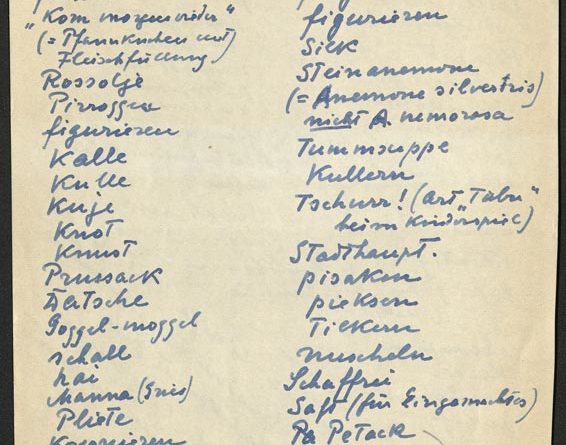 "Kom morgen wieder"
(= Pfannkuchen mit
Fleischfüllung)
Rossolje
Pirroggen
figurieren
Kalle
Kulle
Kuje
Knot
Knust
Prussack
Goggel-moggel
schall
hai
Manna (Gries)
Pliete
figurieren
Siek
Steinanemone
(= Anemone silvestris)
nicht A. nemorosa
Tummsuppe
Kullern
Tschurr! (Art "Tabu"
beim Kinderspiel)
Stadthaupt.
pisaken
pieksen
Tickern
nuscheln
Schaffrei
Saft (für Eingemachtes)
Pa Petack